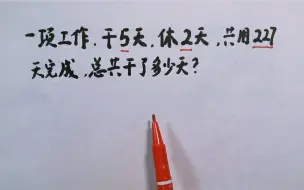 一项工作,干5天,休2天,共用227
天完成,总共干了多少天?